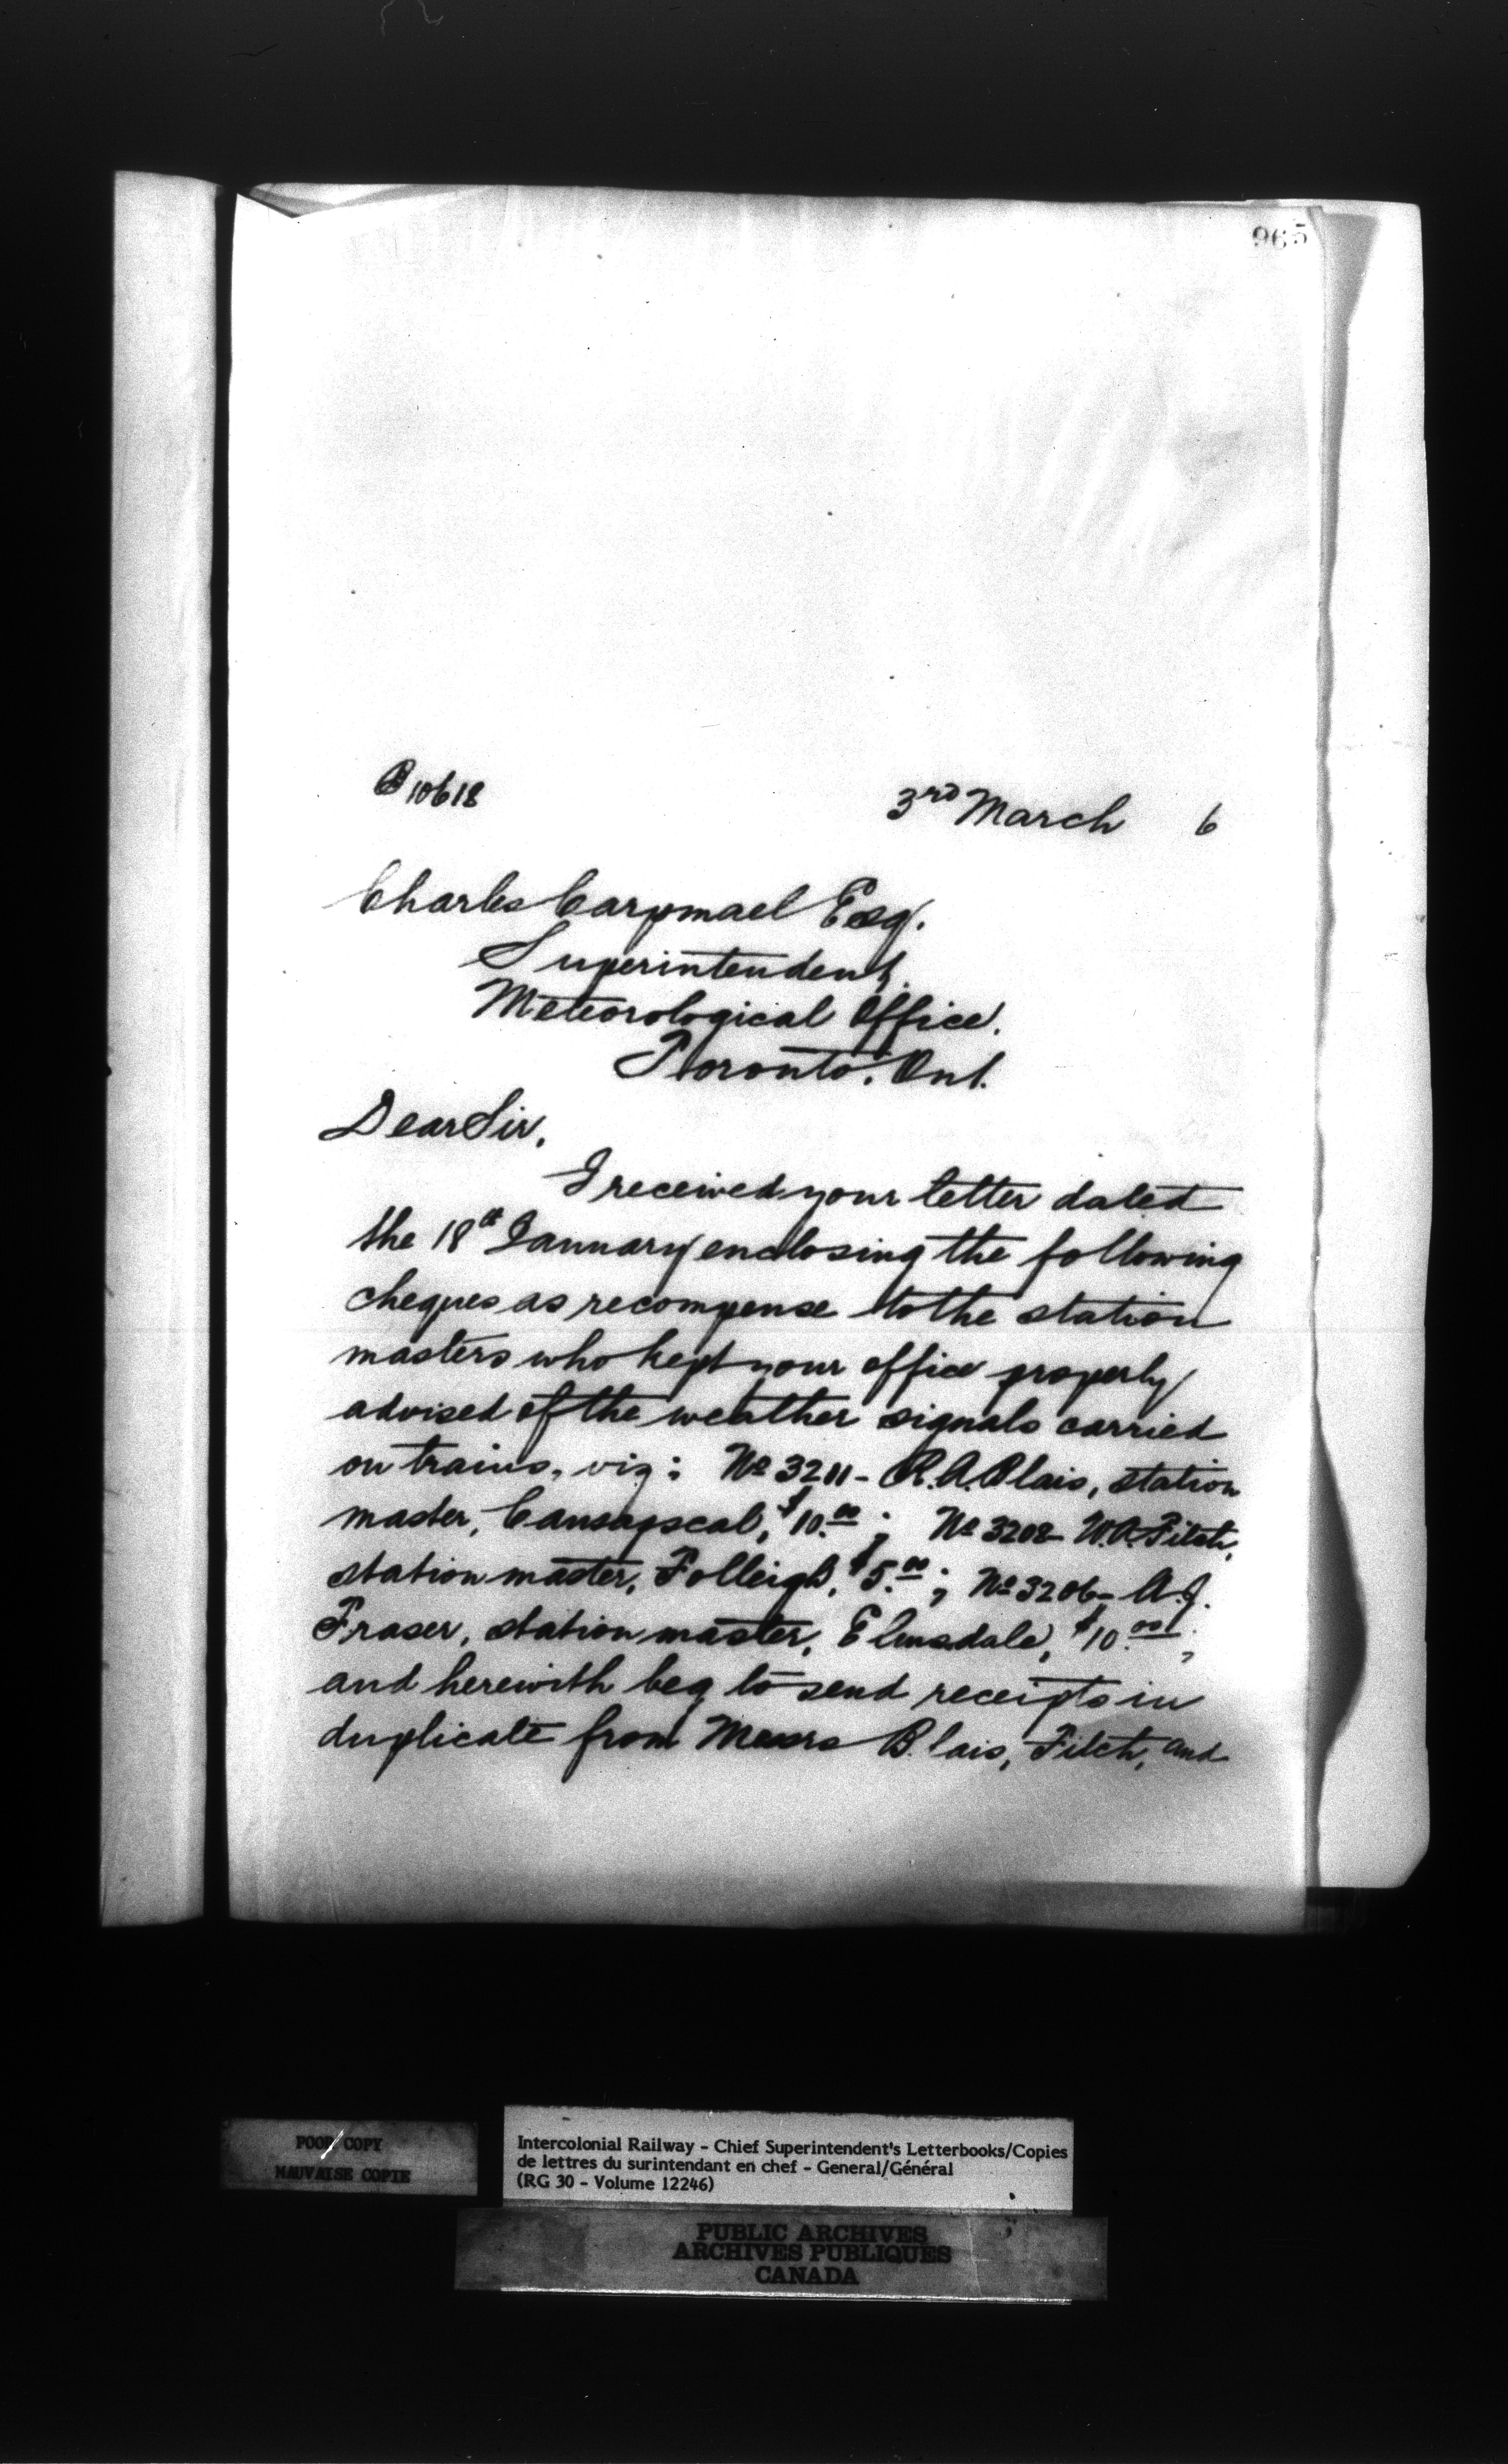 965
10618
3rd March 6
Charles Carpmael Esq.
Superintendent,
Meteorological Office.
Toronto. Ont.
Dear Sir,
I received your letter dated
the 18th January enclosing the following
cheques as recompense to the station
masters who kept your office properly
advised of the weather signals carried
on trains, viz: No 3211- R.A. Blais, station
master, Causapscal, $10.00; No 3208- W.A. Fitch,
station master, Folleigh, $5.00; No 3206- A.J.
Fraser, station master, Elmsdale, $10.00;
and herewith beg to send receipts in
duplicate from Messrs Blais, Fitch, and
POOR COPY
MAUVAISE COPIE
Intercolonial Railway - Chief Superintendent's Letterbooks/Copies
de lettres du surintendant en chef - General/Général
(RG 30 - Volume 12246)
PUBLIC ARCHIVES
ARCHIVES PUBLIQUES
CANADA